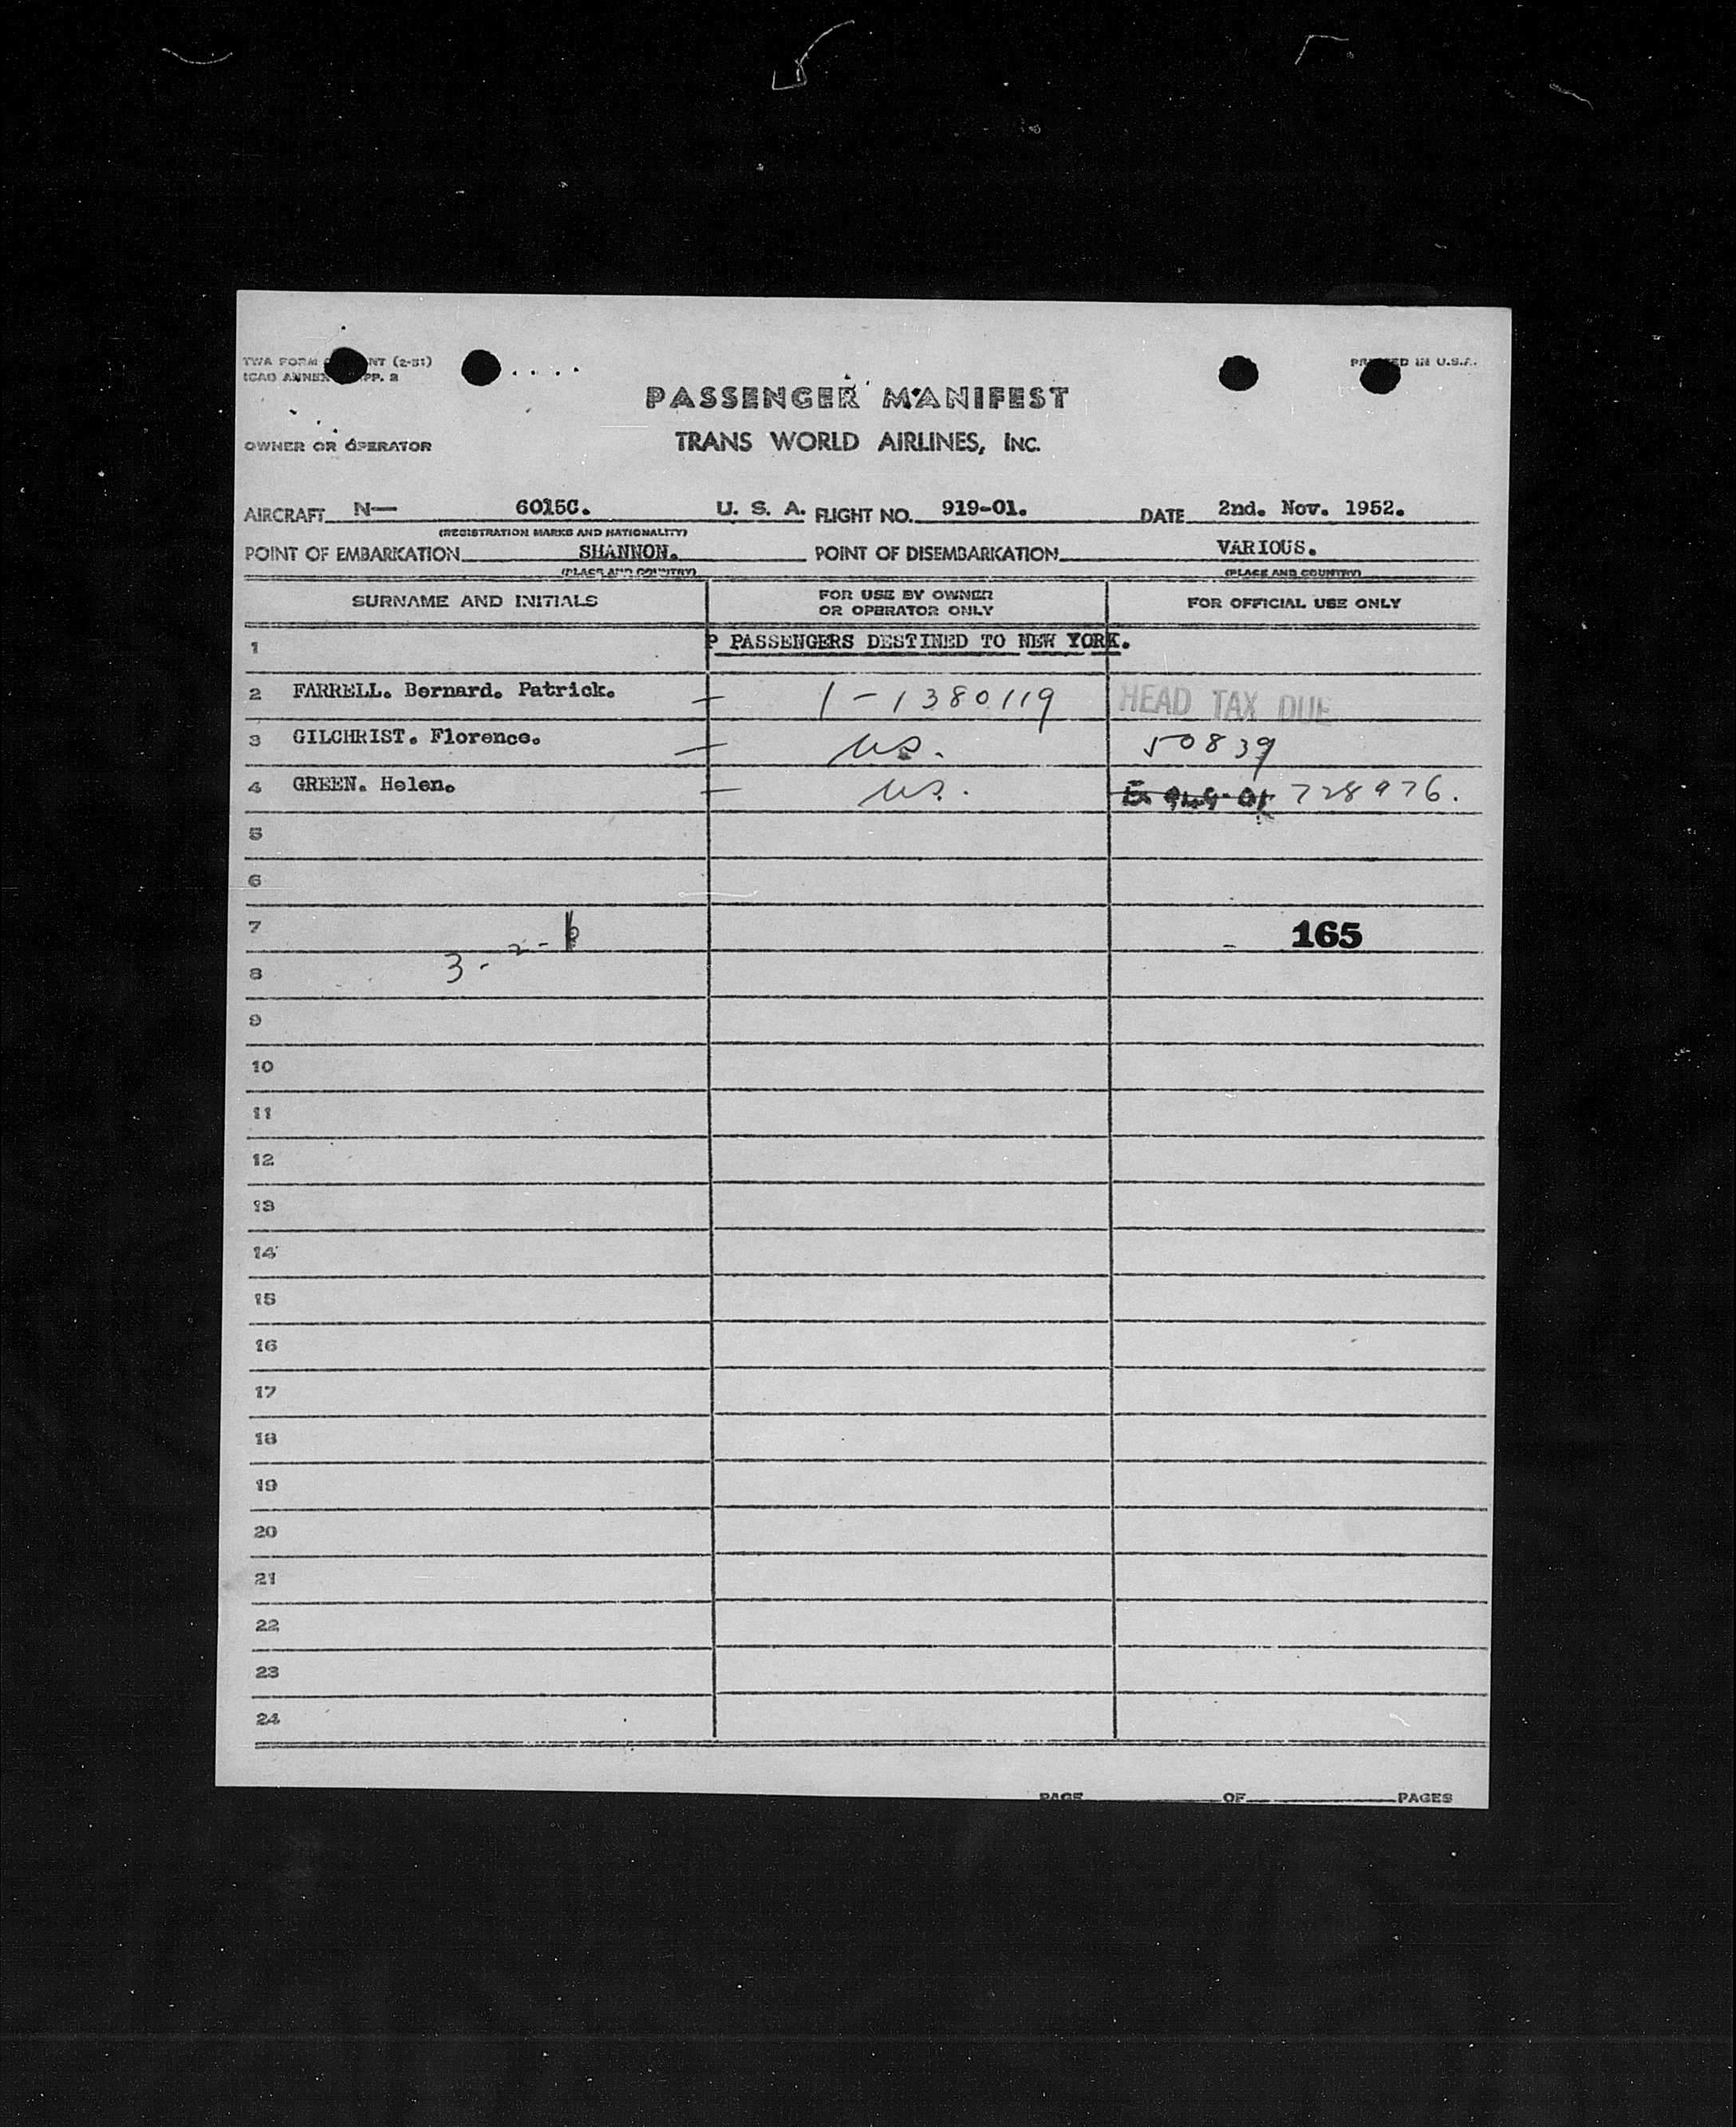 TWA FORM NT (2-51) PRINTED IN U.S.A.
ICAO ANNEX APP. 2
PASSENGER MANIFEST
OWNER OR OPERATOR TRANS WORLD AIRLINES, INC.
AIRCRAFT N— 6015C. U. S. A. FLIGHT NO. 919-01. DATE 2nd. Nov. 1952.
(REGISTRATION MARKS AND NATIONALITY)
POINT OF EMBARKATION SHANNON. POINT OF DISEMBARKATION VARIOUS.
(PLACE AND COUNTRY) (PLACE AND COUNTRY)
SURNAME AND INITIALS FOR USE BY OWNER OR OPERATOR ONLY FOR OFFICIAL USE ONLY
1 P PASSENGERS DESTINED TO NEW YORK.
2 FARRELL. Bernard. Patrick. — 1-1380119 HEAD TAX DUE
3 GILCHRIST. Florence. — US. 50839
4 GREEN. Helen. — US. 728976.
5
6
7 165
8 3-2-
9
10
11
12
13
14
15
16
17
18
19
20
21
22
23
24
PAGE OF PAGES